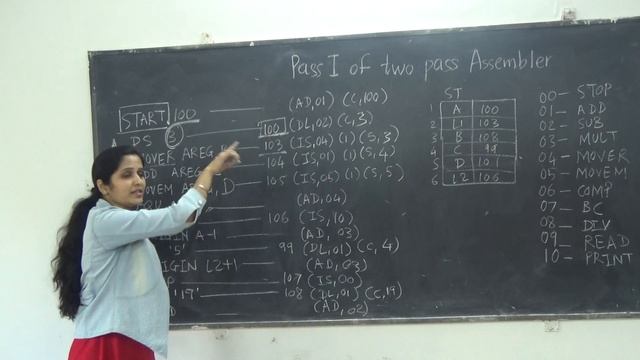 Pass I of two pass Assembler
START 100 (AD,01) (C,100)
DS 3 100 (DL,02) (C,3)
MOVER AREG, 103 (IS,04) (1) (S,3)
AREG 104 (IS,01) (1) (S,4)
MOVEM AREG, D 105 (IS,05) (1) (S,5)
(AD,04)
106 (IS,10)
A-1 (AD,03)
'5' 99 (DL,01) (C,4)
L2+1 (AD,03)
107 (IS,00)
'19' 108 (DL,01) (C,19)
(AD,02)
ST
1 A 100
2 L1 103
3 B 108
4 C 99
5 D 101
6 L2 106
00 - STOP
01 - ADD
02 - SUB
03 - MULT
04 - MOVER
05 - MOVEM
06 - COMP
07 - BC
08 - DIV
09 - READ
10 - PRINT